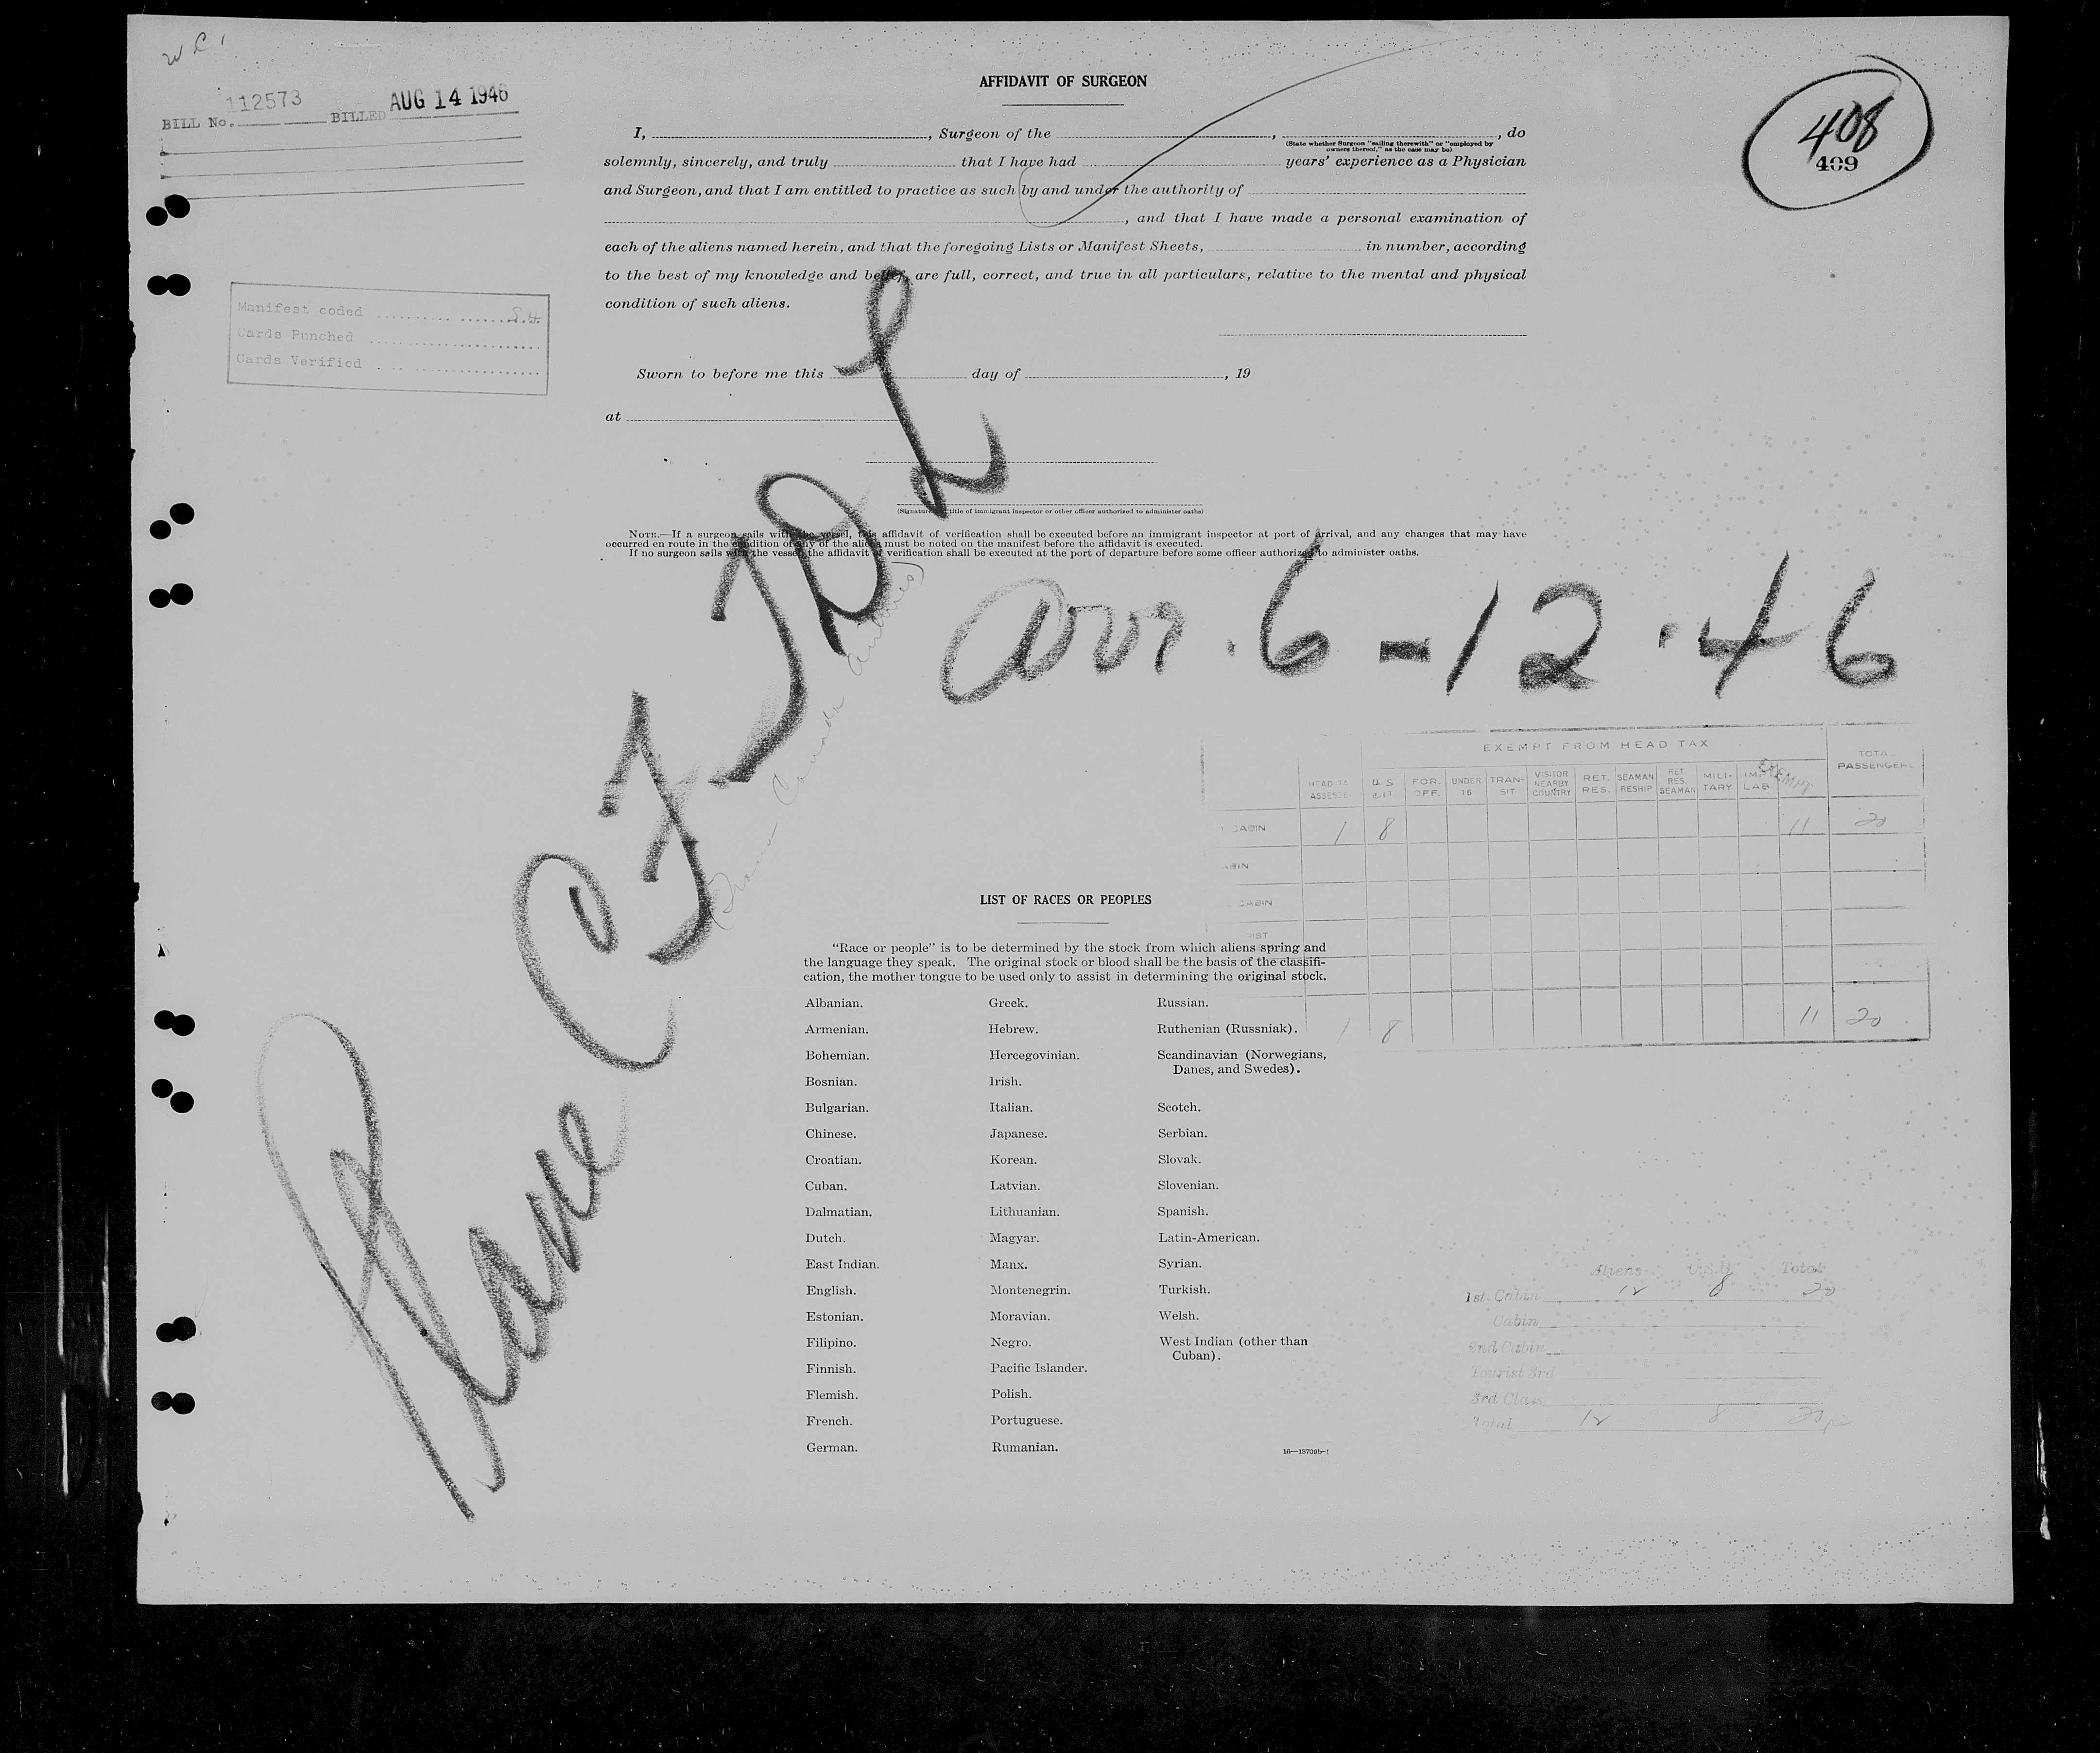 W.C.
112573
BILL No. BILLED AUG 14 1946
408
409
AFFIDAVIT OF SURGEON
I, , Surgeon of the , , do
(State whether Surgeon "sailing therewith" or "employed by
owners thereof," as the case may be)
solemnly, sincerely, and truly that I have had years' experience as a Physician
and Surgeon, and that I am entitled to practice as such by and under the authority of
, and that I have made a personal examination of
each of the aliens named herein, and that the foregoing Lists or Manifest Sheets, in number, according
to the best of my knowledge and belief, are full, correct, and true in all particulars, relative to the mental and physical
condition of such aliens.
Manifest coded
Cards Punched
Cards Verified
Sworn to before me this day of , 19
at
(Signature title of immigrant inspector or other officer authorized to administer oaths)
NOTE.—If a surgeon sails with the vessel, this affidavit of verification shall be executed before an immigrant inspector at port of arrival, and any changes that may have
occurred en route in the condition of any of the aliens must be noted on the manifest before the affidavit is executed.
If no surgeon sails with the vessel, the affidavit of verification shall be executed at the port of departure before some officer authorized to administer oaths.
Plane CF-TDL
(Trans Canada Airlines)
arr. 6-12-46
EXEMPT FROM HEAD TAX
HEAD TAX ASSESSED U.S. CIT. FOR. OFF. UNDER 16 TRANSIT VISITOR NEARBY COUNTRY RET. RES. SEAMAN RESHIP RET. RES. SEAMAN MILITARY IMP. LAB. EXEMPT TOTAL PASSENGERS
CABIN 1 8 11 20
CABIN
CABIN
1 8 11 20
LIST OF RACES OR PEOPLES
"Race or people" is to be determined by the stock from which aliens spring and
the language they speak. The original stock or blood shall be the basis of the classifi-
cation, the mother tongue to be used only to assist in determining the original stock.
Albanian. Greek. Russian.
Armenian. Hebrew. Ruthenian (Russniak).
Bohemian. Hercegovinian. Scandinavian (Norwegians,
Danes, and Swedes).
Bosnian. Irish.
Bulgarian. Italian. Scotch.
Chinese. Japanese. Serbian.
Croatian. Korean. Slovak.
Cuban. Latvian. Slovenian.
Dalmatian. Lithuanian. Spanish.
Dutch. Magyar. Latin-American.
East Indian. Manx. Syrian.
English. Montenegrin. Turkish.
Estonian. Moravian. Welsh.
Filipino. Negro. West Indian (other than
Cuban).
Finnish. Pacific Islander.
Flemish. Polish.
French. Portuguese.
German. Rumanian.
Aliens Total
1st. Cabin 12 8 20
Cabin
2nd Cabin
Tourist 3rd
3rd Class
Total 12 8 20